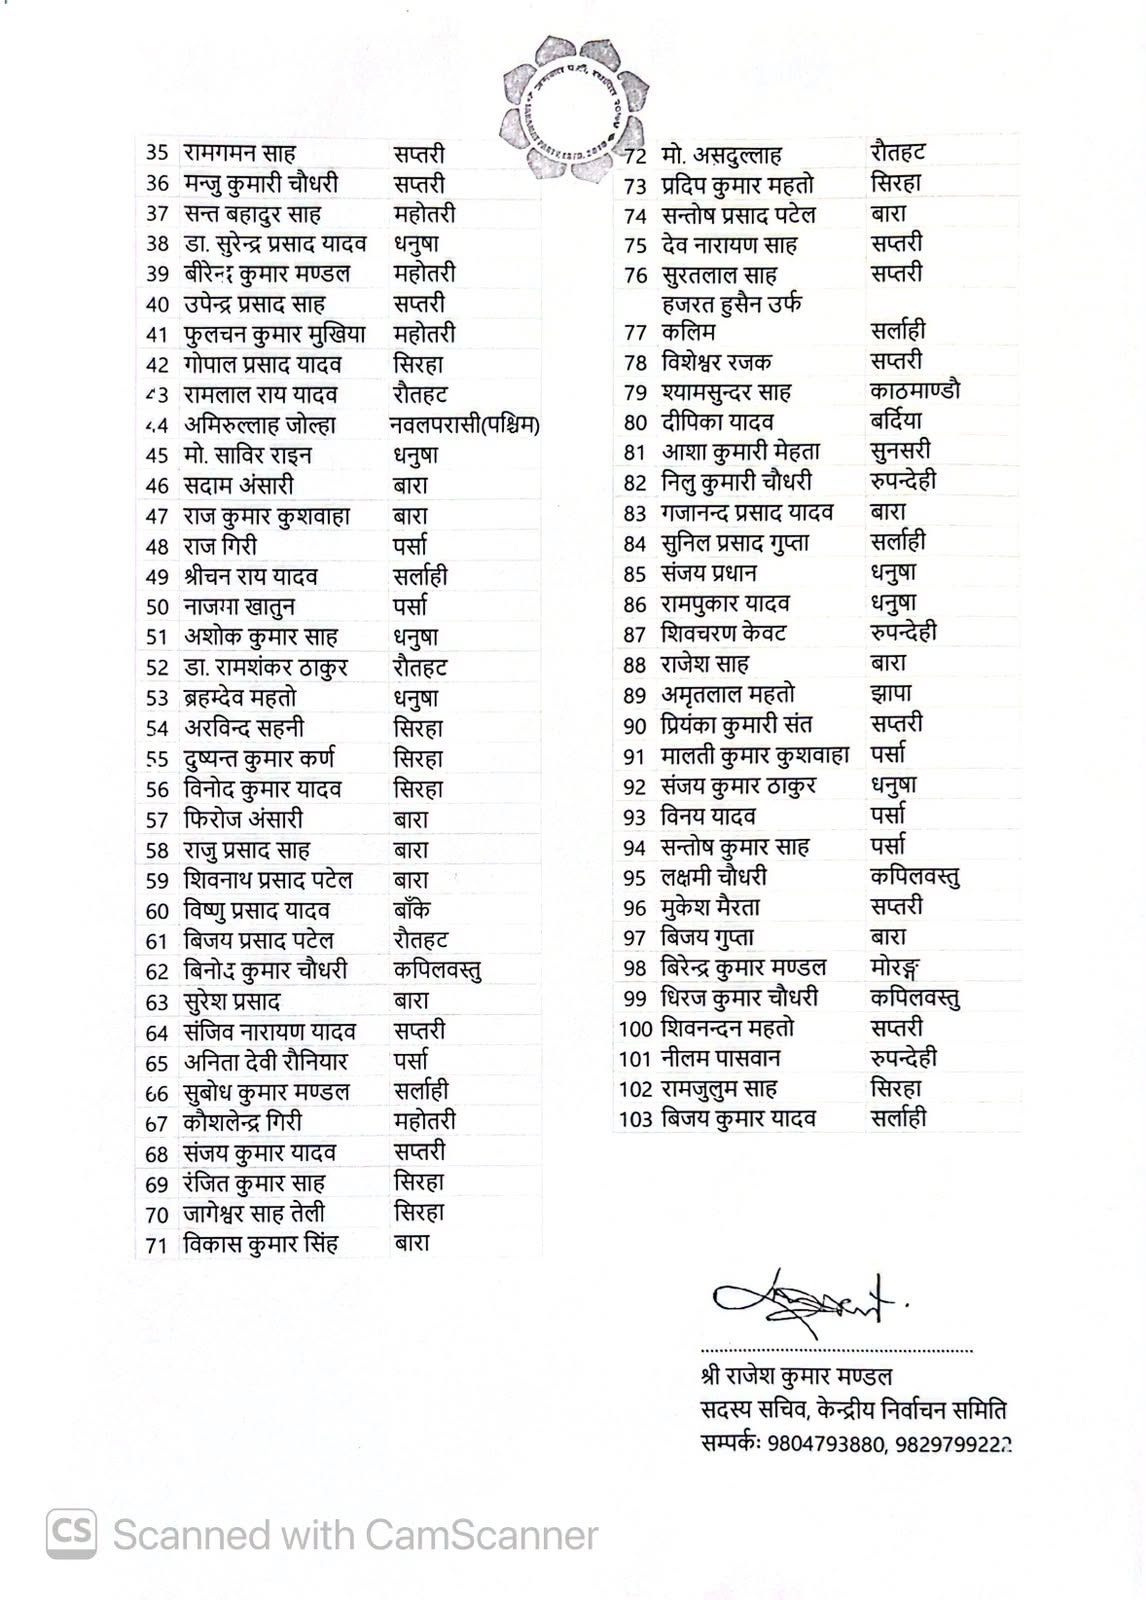 35 रामगमन साह सप्तरी
36 मन्जु कुमारी चौधरी सप्तरी
37 सन्त बहादुर साह महोतरी
38 डा. सुरेन्द्र प्रसाद यादव धनुषा
39 बीरेन्द्र कुमार मण्डल महोतरी
40 उपेन्द्र प्रसाद साह सप्तरी
41 फुलचन कुमार मुखिया महोतरी
42 गोपाल प्रसाद यादव सिरहा
43 रामलाल राय यादव रौतहट
44 अमिरुल्लाह जोल्हा नवलपरासी(पश्चिम)
45 मो. साविर राइन धनुषा
46 सदाम अंसारी बारा
47 राज कुमार कुशवाहा बारा
48 राज गिरी पर्सा
49 श्रीचन राय यादव सर्लाही
50 नाजमा खातुन पर्सा
51 अशोक कुमार साह धनुषा
52 डा. रामशंकर ठाकुर रौतहट
53 ब्रहम्देव महतो धनुषा
54 अरविन्द सहनी सिरहा
55 दुष्यन्त कुमार कर्ण सिरहा
56 विनोद कुमार यादव सिरहा
57 फिरोज अंसारी बारा
58 राजु प्रसाद साह बारा
59 शिवनाथ प्रसाद पटेल बारा
60 विष्णु प्रसाद यादव बाँके
61 बिजय प्रसाद पटेल रौतहट
62 बिनोद कुमार चौधरी कपिलवस्तु
63 सुरेश प्रसाद बारा
64 संजिव नारायण यादव सप्तरी
65 अनिता देवी रौनियार पर्सा
66 सुबोध कुमार मण्डल सर्लाही
67 कौशलेन्द्र गिरी महोतरी
68 संजय कुमार यादव सप्तरी
69 रंजित कुमार साह सिरहा
70 जागेश्वर साह तेली सिरहा
71 विकास कुमार सिंह बारा
72 मो. असदुल्लाह रौतहट
73 प्रदिप कुमार महतो सिरहा
74 सन्तोष प्रसाद पटेल बारा
75 देव नारायण साह सप्तरी
76 सुरतलाल साह सप्तरी
हजरत हुसैन उर्फ
77 कलिम सर्लाही
78 विशेश्वर रजक सप्तरी
79 श्यामसुन्दर साह काठमाण्डौ
80 दीपिका यादव बर्दिया
81 आशा कुमारी मेहता सुनसरी
82 निलु कुमारी चौधरी रुपन्देही
83 गजानन्द प्रसाद यादव बारा
84 सुनिल प्रसाद गुप्ता सर्लाही
85 संजय प्रधान धनुषा
86 रामपुकार यादव धनुषा
87 शिवचरण केवट रुपन्देही
88 राजेश साह बारा
89 अमृतलाल महतो झापा
90 प्रियंका कुमारी संत सप्तरी
91 मालती कुमार कुशवाहा पर्सा
92 संजय कुमार ठाकुर धनुषा
93 विनय यादव पर्सा
94 सन्तोष कुमार साह पर्सा
95 लक्षमी चौधरी कपिलवस्तु
96 मुकेश मैरता सप्तरी
97 बिजय गुप्ता बारा
98 बिरेन्द्र कुमार मण्डल मोरङ्ग
99 धिरज कुमार चौधरी कपिलवस्तु
100 शिवनन्दन महतो सप्तरी
101 नीलम पासवान रुपन्देही
102 रामजुलुम साह सिरहा
103 बिजय कुमार यादव सर्लाही
श्री राजेश कुमार मण्डल
सदस्य सचिव, केन्द्रीय निर्वाचन समिति
सम्पर्कः 9804793880, 9829799222
CS Scanned with CamScanner